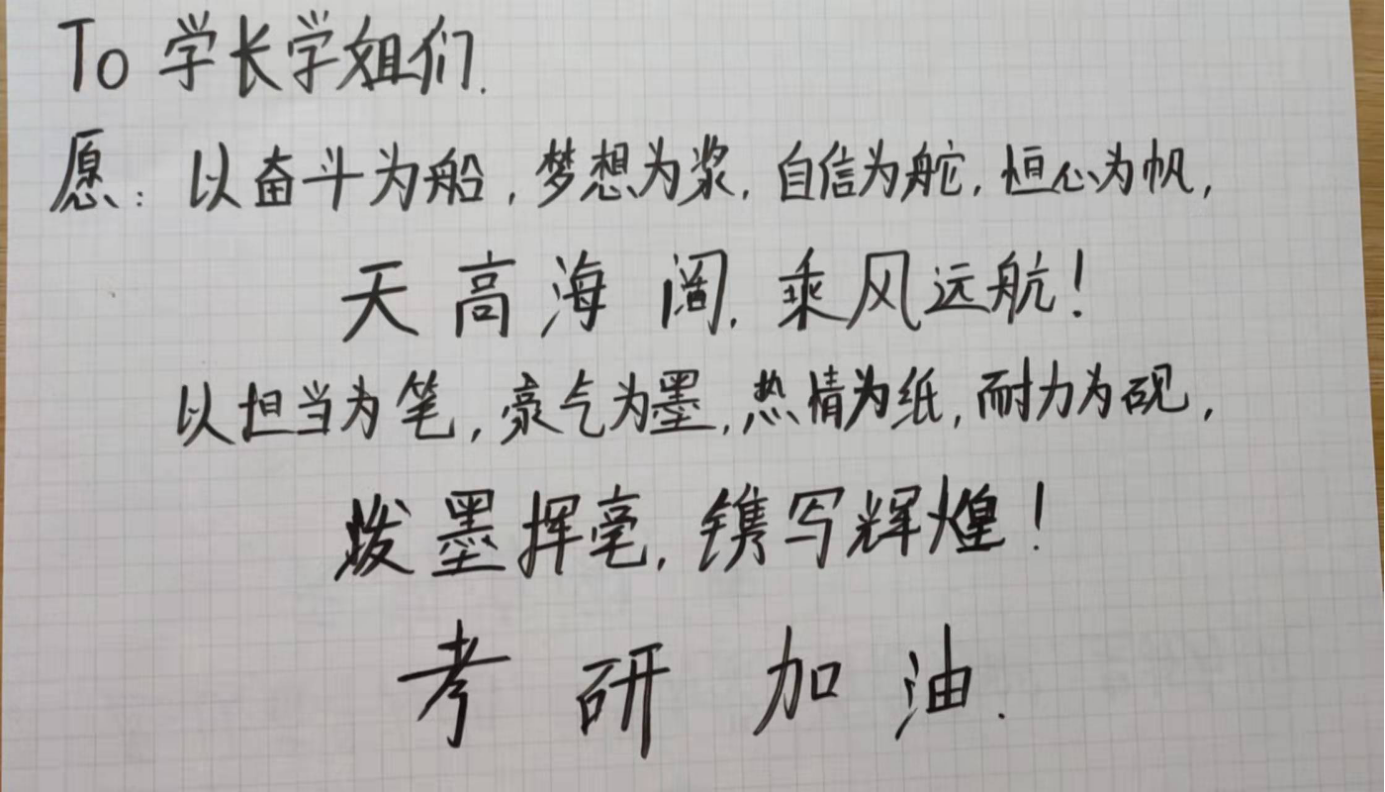 To 学长学姐们.
愿：以奋斗为船，梦想为浆，自信为舵，恒心为帆，
天高海阔，乘风远航！
以担当为笔，豪气为墨，热情为纸，耐力为砚，
拨墨挥毫，镌写辉煌！
考研加油.